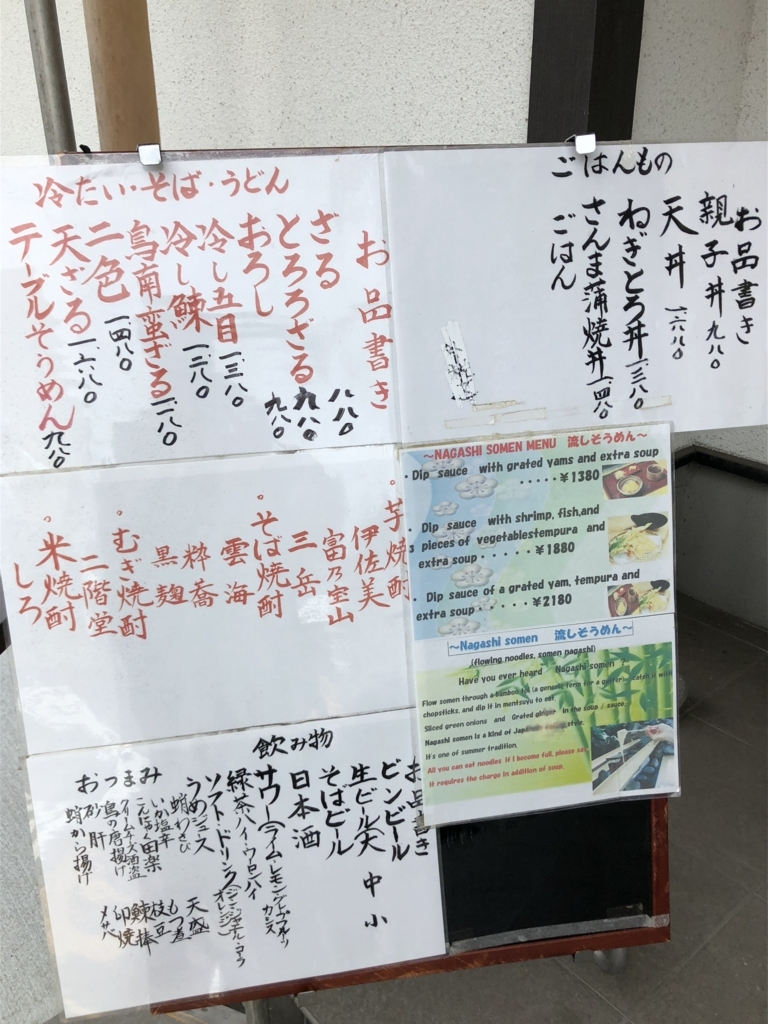 冷たい・そば・うどん
お品書き
ざる 八八〇
とろろざる 九八〇
おろし 九八〇
冷し五目 一三八〇
冷し鰊 一二八〇
鳥南蛮ざる 一一八〇
二色 一四八〇
天ざる 一六八〇
テーブルそうめん 九八〇
ごはんもの
お品書き
親子丼 九八〇
天丼 一六八〇
ねぎとろ丼 一三八〇
さんま蒲焼丼 一四八〇
ごはん
。芋焼酎
伊佐美
富乃宝山
三岳
。そば焼酎
雲海
粋喬
黒麹
。むぎ焼酎
二階堂
。米焼酎
しろ
～NAGASHI SOMEN MENU 流しそうめん～
・Dip sauce with grated yams and extra soup
・・・・・¥1380
・Dip sauce with shrimp, fish,and
3 pieces of vegetablestempura and
extra soup・・・・・¥1880
・Dip sauce of a grated yam, tempura and
extra soup・・・・・¥2180
～Nagashi somen 流しそうめん～
(flowing noodles, somen nagashi)
Have you ever heard Nagashi somen
Flow somen through a bamboo
chopsticks, and dip it in mentsuyu to eat.
Sliced green onions and Grated ginger in the soup / sauce.
Nagashi somen is a kind of Japanese eating style.
It's one of summer tradition.
All you can eat noodles If I become full, please say
It requires the charge in addition of soup.
飲み物
お品書き
ビンビール
生ビール(大 中 小
そばビール
日本酒
サワー(ライム・レモン・グレープフルーツ
カシス
緑茶ハイ・ウーロンハイ
ソフト・ドリンク
うめジュース
おつまみ
蛸わさび 天盛
いか塩辛 もつ煮
こんにゃく田楽 枝豆
クリームチーズ酒盗 鰊棒
鳥の唐揚げ
砂肝
蛸から揚げ